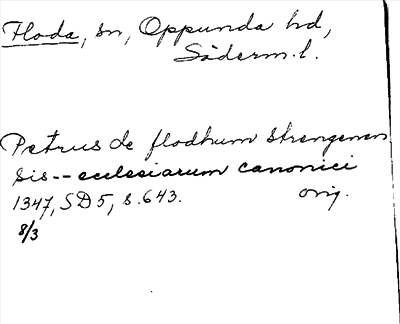 Floda, sn, Oppunda hd,
Söderm.l.
Petrus de flodhum Strengenen
sis -- ecclesiarum canonici
1347, SD 5, s. 643. orig.
8/3